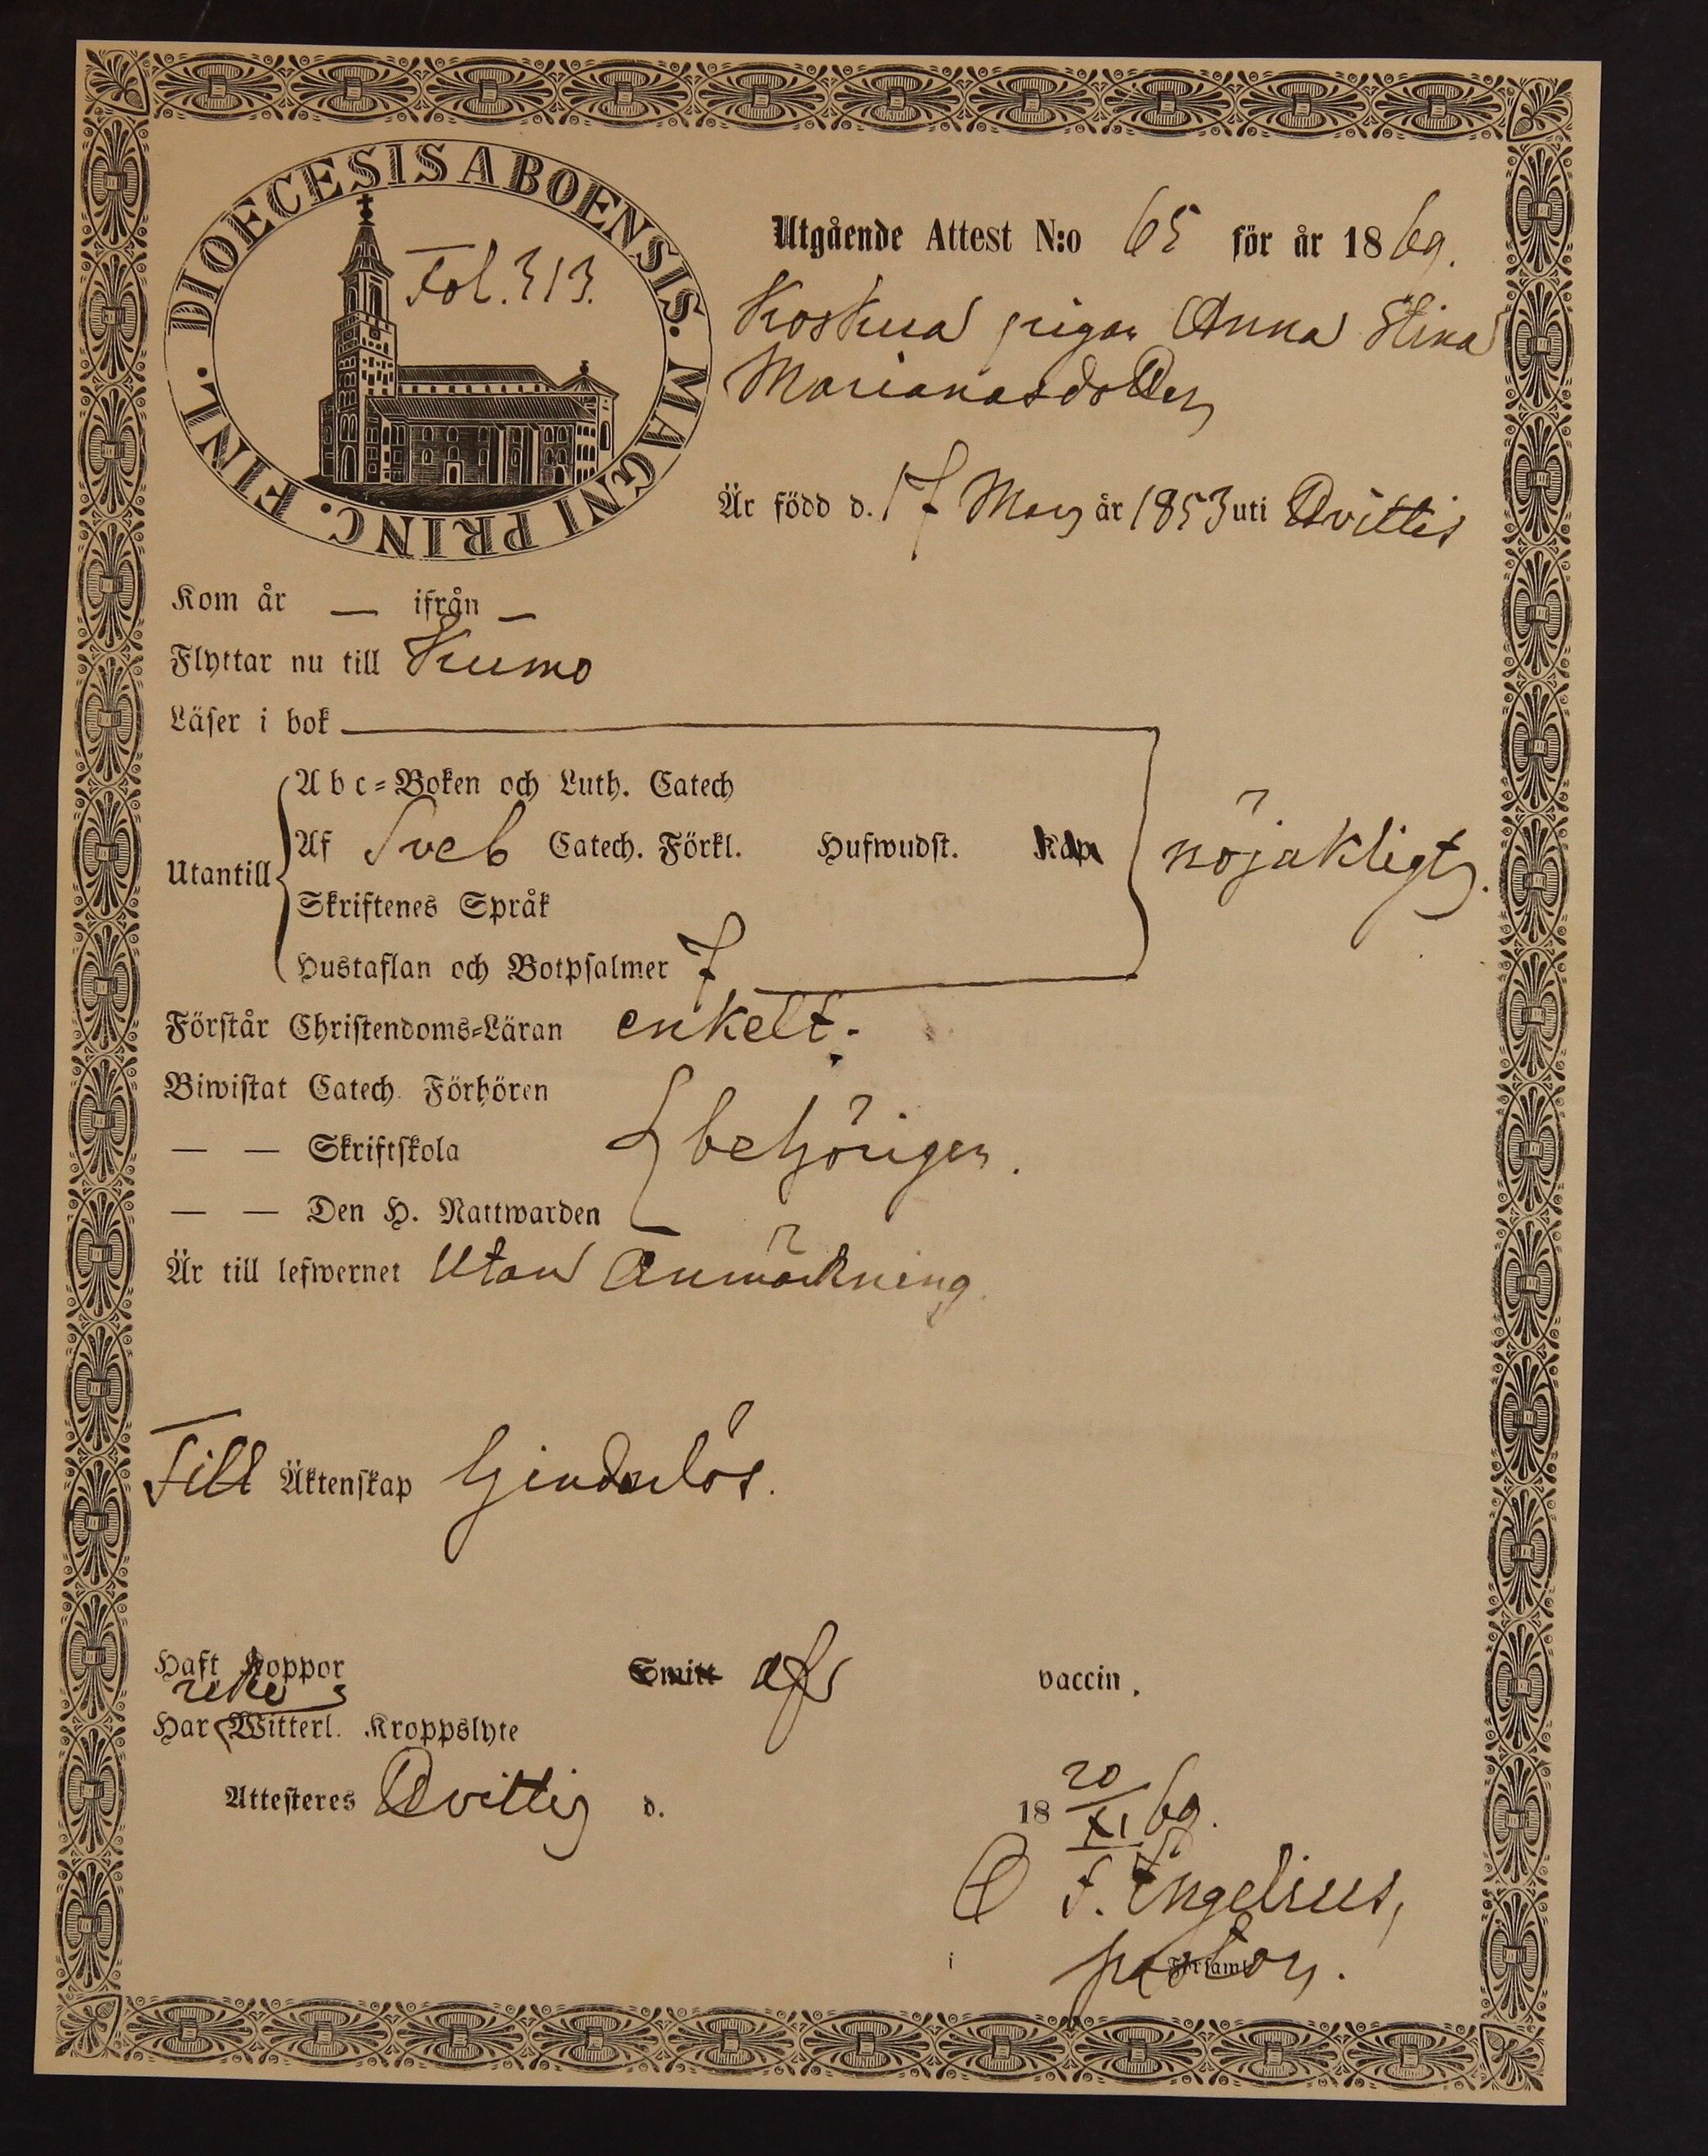 DIOECESIS ABOENSIS. MAGNI PRINC. FINL.
Fol. 313.
Utgående Attest N:o 65 för år 1869.
Koskua pigan Anna Stina
Marianasdotter
Är född d. 17 Mars år 1853 uti Hvittis
Kom år — ifrån —
Flyttar nu till Kumo
Läser i bok
Abc-Boken och Luth. Catech
Utantill Af Sveb Catech. Förkl. Hufwudst. Kap nöjaktligt.
Skriftenes Språk
Hustaflan och Botpsalmer 7
Förstår Christendoms-Läran enkelt.
Biwistat Catech. Förhören
— — Skriftskola behörigen.
— — Den H. Nattwarden
Är till lefwernet utan Anmärkning.
Till Äktenskap hinderlös.
Haft Koppor Smitt af vaccin.
icke
Har Witterl. Kroppslyte
Attesteres Hvittis d. 18 20/XI 69.
F. Engelius,
i pastor. Församl.